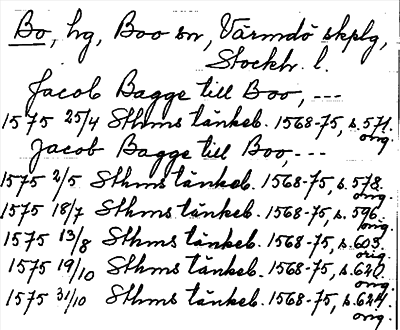 Bo, hg, Boo sn, Värmdö skplg,
Stockh. l.
Jacob Bagge till Boo, ---
1575 25/4 Sthms tänkeb. 1568-75, s.571.
orig.
Jacob Bagge till Boo, ---
1575 2/5 Sthms tänkeb. 1568-75, s.578.
orig.
1575 18/7 Sthms tänkeb. 1568-75, s.596,
orig.
1575 13/8 Sthms tänkeb. 1568-75, s.603.
orig.
1575 19/10 Sthms tänkeb. 1568-75, s.620,
orig.
1575 31/10 Sthms tänkeb. 1568-75, s.624,
orig.